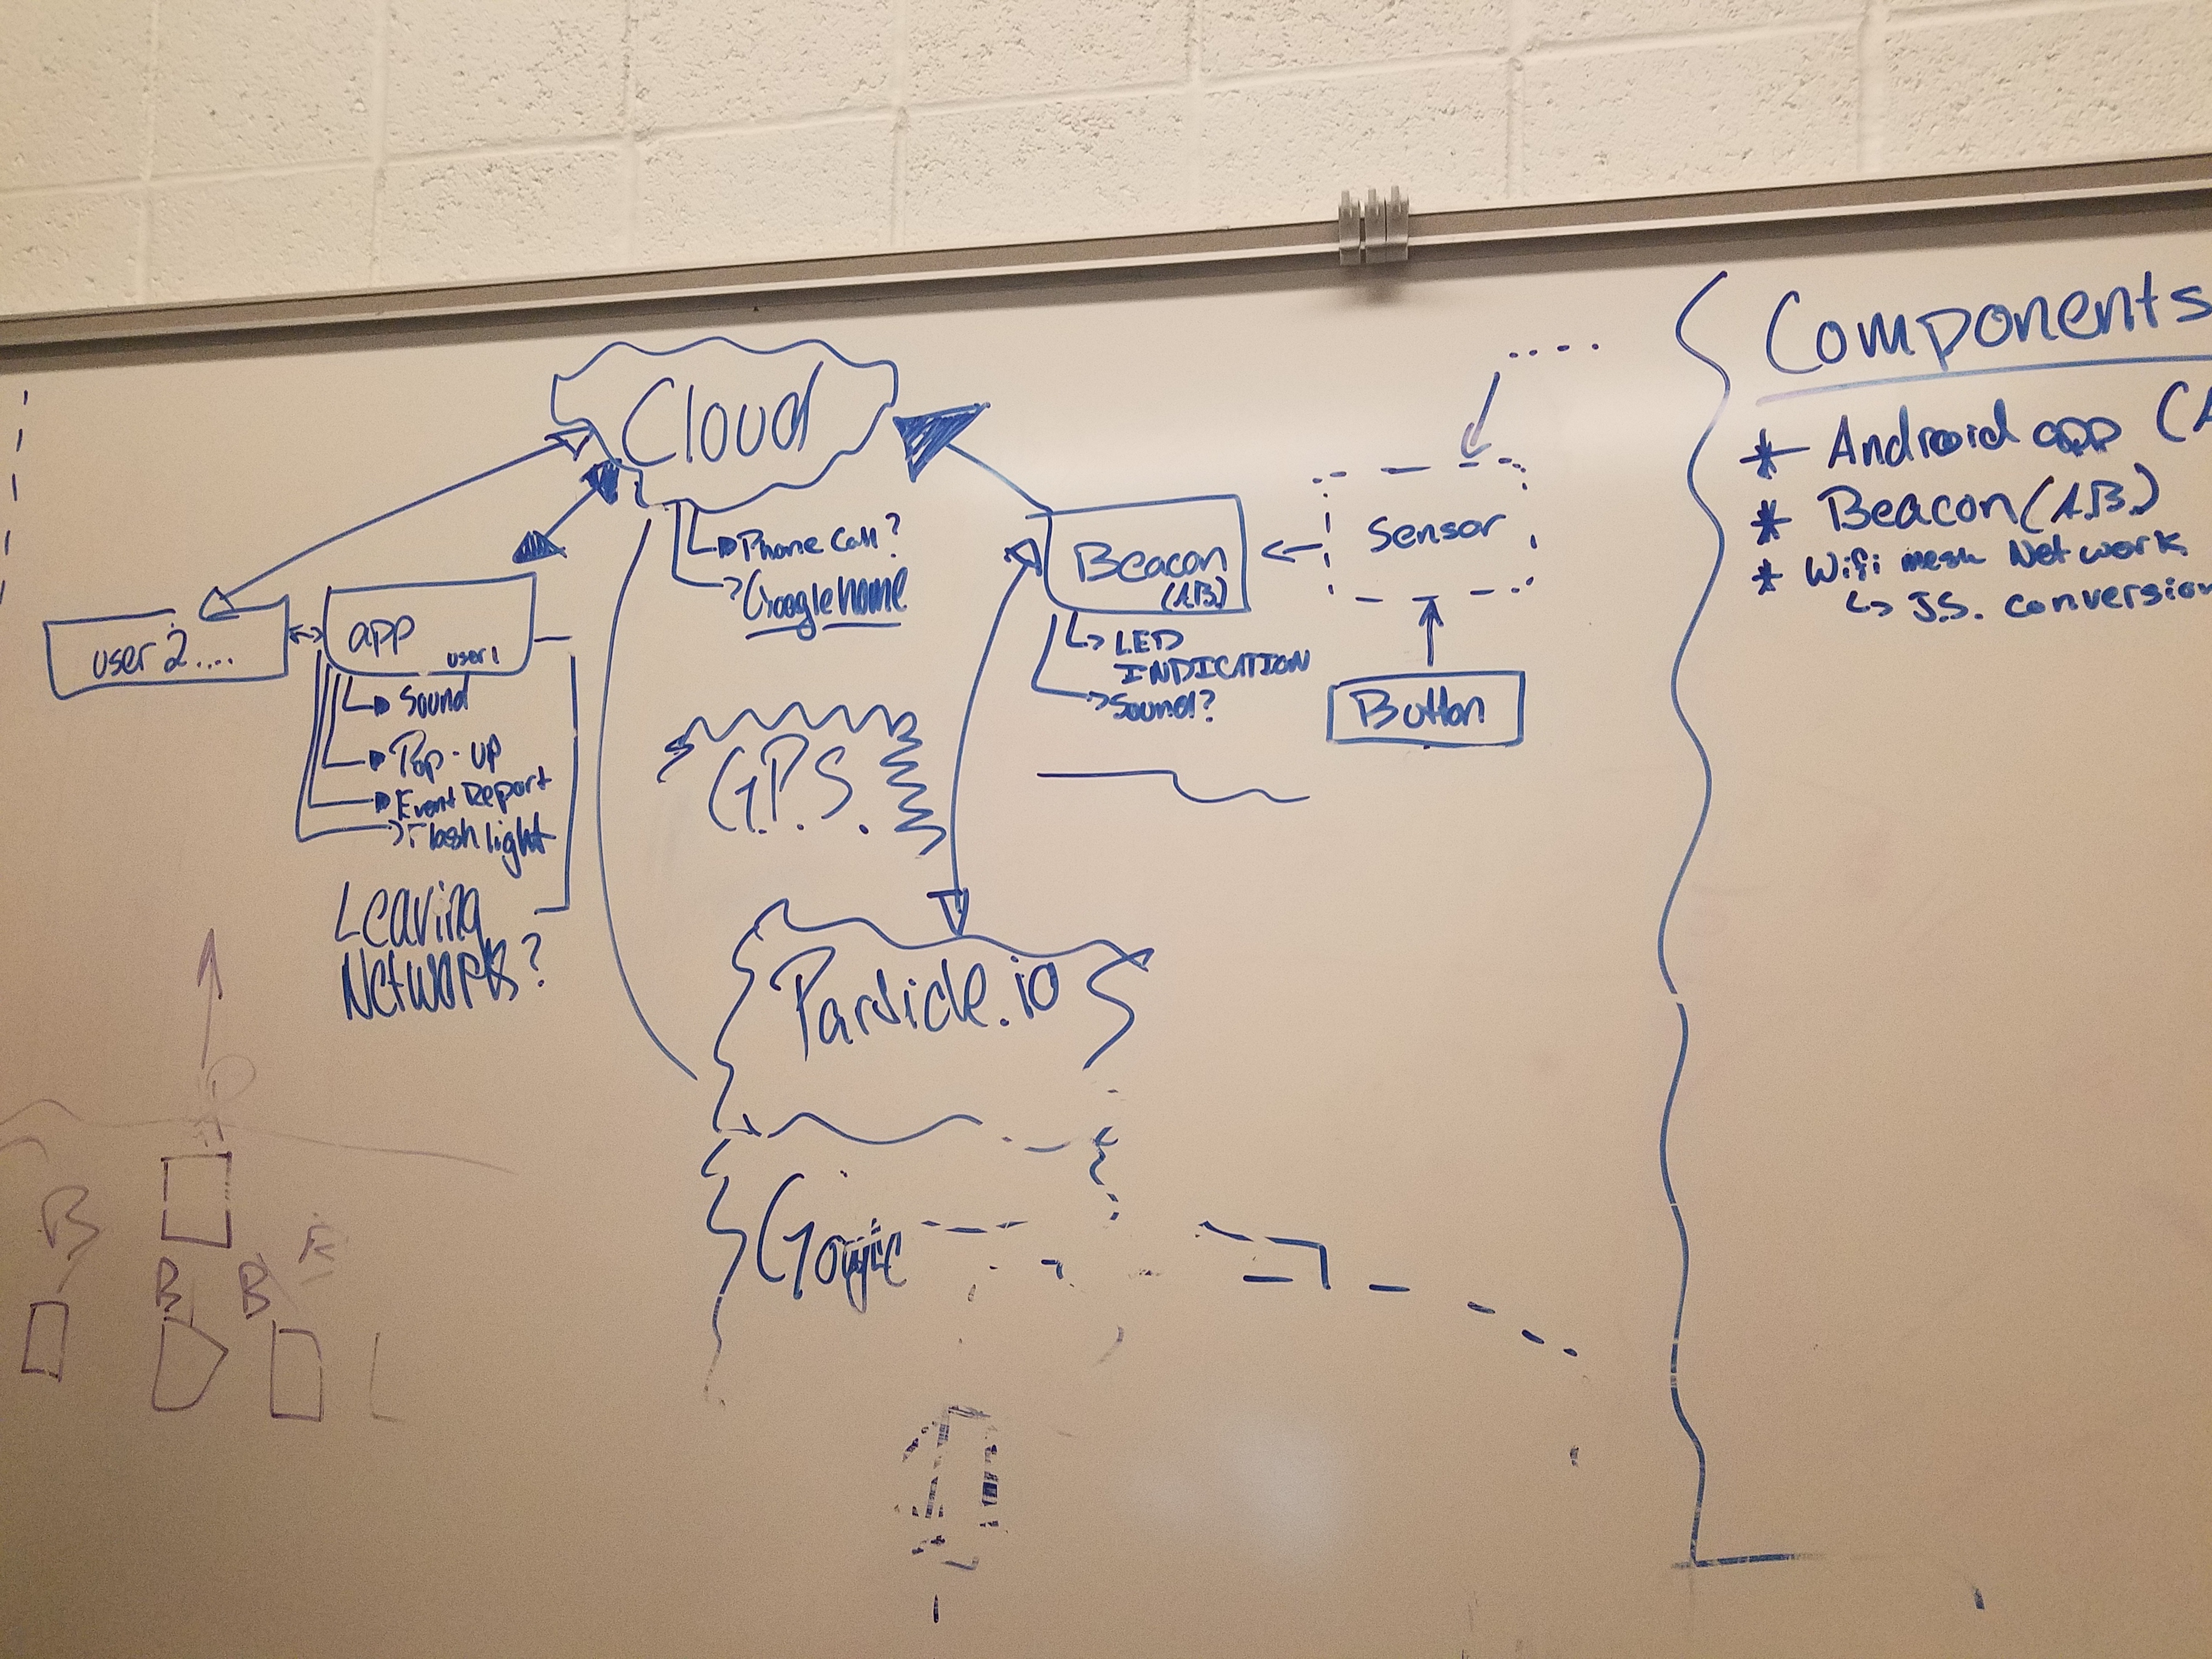 Cloud
Phone Call?
Google home
user 2....
app
user 1
Sound
Pop-up
Event Report
Flash light
Leaving
Networks?
G.P.S.
Beacon
(A.B.)
LED
INDICATION
Sound?
Sensor
Button
Particle.io
B
B
B
Components
* Android app (A
* Beacon (A.B.)
* Wifi mesh Network
J.S. conversion